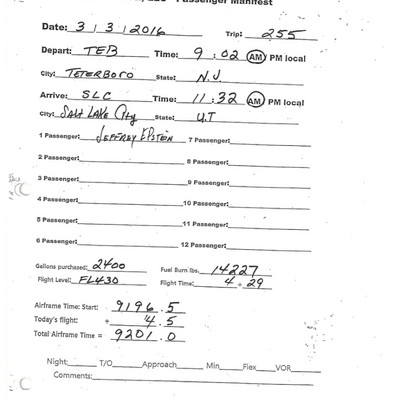 Passenger Manifest
Date: 3 / 3 / 2016 Trip: 255
Depart: TEB Time: 9 : 02 AM PM local
City: TETERBORO State: N.J.
Arrive: SLC Time: 11 : 32 AM PM local
City: SALT LAKE City State: U.T
1 Passenger: JEFFREY EPSTEIN 7 Passenger:
2 Passenger: 8 Passenger:
3 Passenger: 9 Passenger:
4 Passenger: 10 Passenger:
5 Passenger: 11 Passenger:
6 Passenger: 12 Passenger:
Gallons purchased: 2400 Fuel Burn lbs. 14227
Flight Level: FL430 Flight Time: 4 + 29
Airframe Time: Start: 9196.5
Today's flight: + 4.5
Total Airframe Time = 9201.0
Night: T/O Approach Min Flex VOR
Comments: